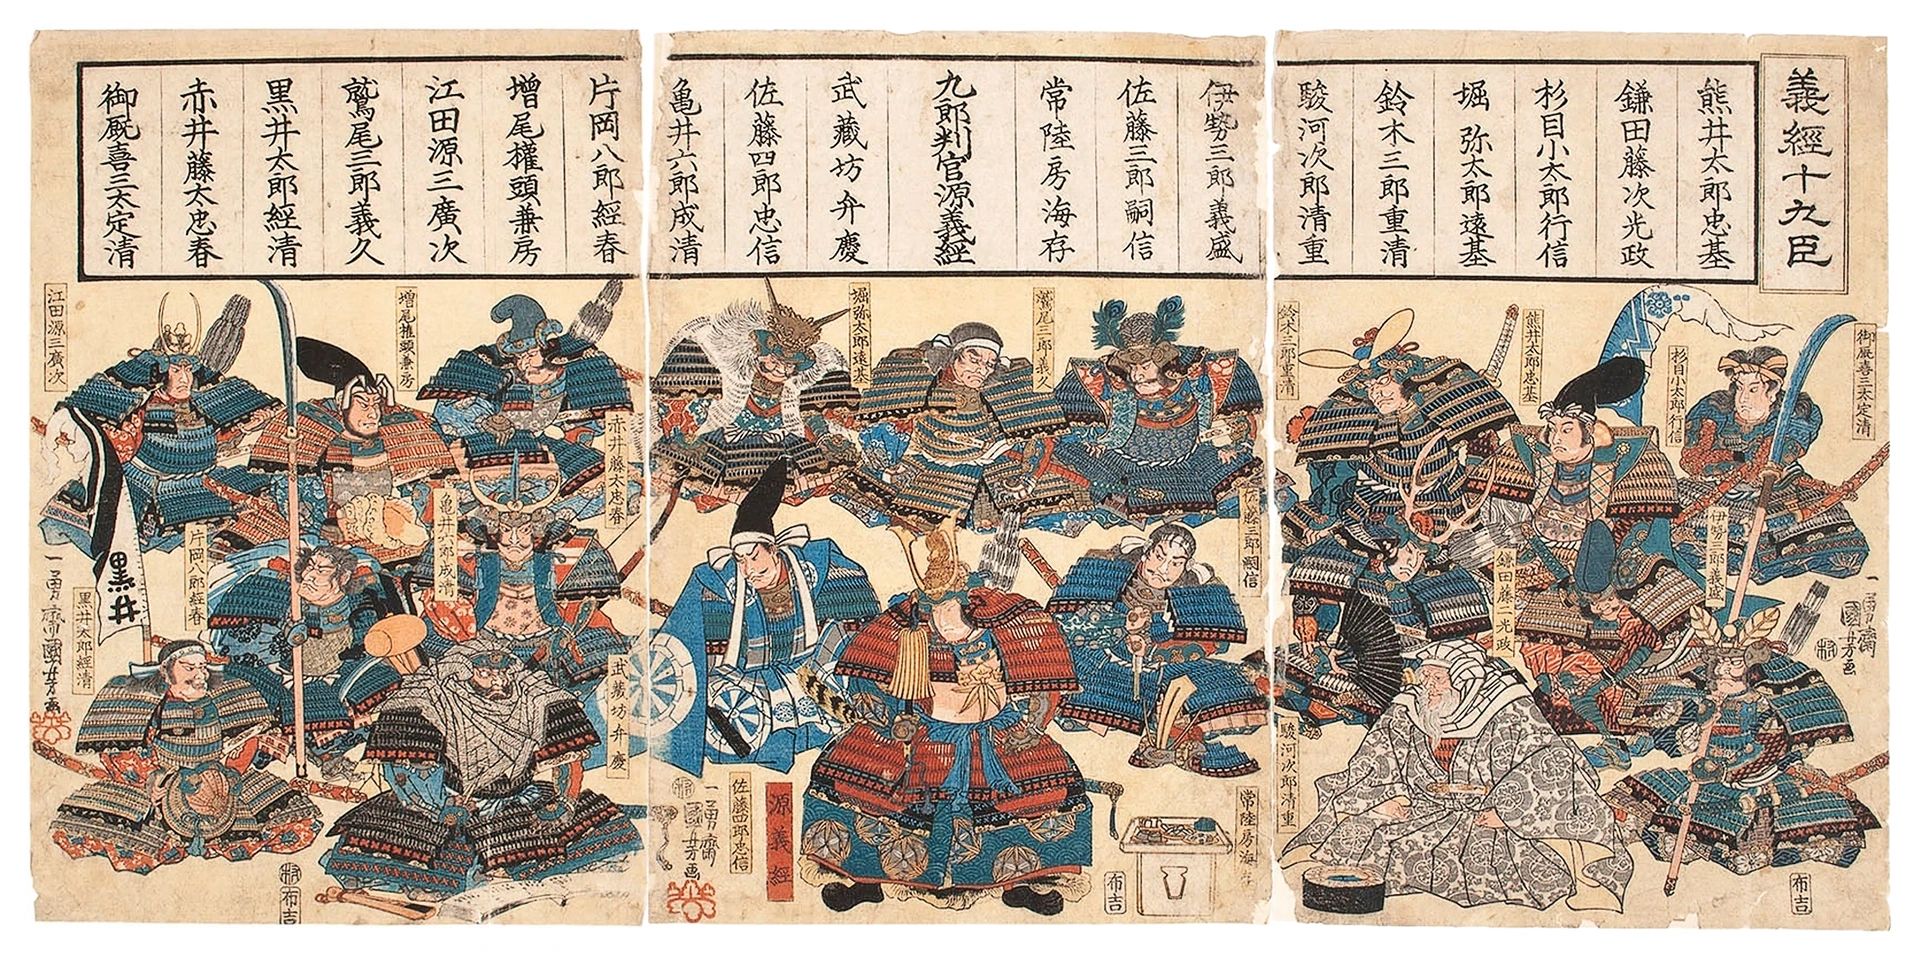 義經十九臣
熊井太郎忠基
鎌田藤次光政
杉目小太郎行信
堀弥太郎遠基
鈴木三郎重清
駿河次郎清重
伊勢三郎義盛
佐藤三郎嗣信
常陸房海存
九郎判官源義経
武藏坊弁慶
佐藤四郎忠信
亀井六郎成清
片岡八郎経春
増尾權頭兼房
江田源三廣次
鷲尾三郎義久
黒井太郎経清
赤井藤太忠春
御厩喜三太定清
御厩喜三太定清
杉目小太郎行信
熊井太郎忠基
鈴木三郎重清
伊勢三郎義盛
鎌田藤二光政
駿河次郎清重
一勇齋國芳画
布吉
鷲尾三郎義久
堀弥太郎遠基
佐藤三郎嗣信
常陸房海
源義経
佐藤四郎忠信
一勇齋國芳画
布吉
増尾権頭兼房
江田源三廣次
赤井藤太忠春
亀井六郎成清
片岡八郎経春
黒井
黒井太郎経清
武藏坊弁慶
一勇齋國芳画
布吉